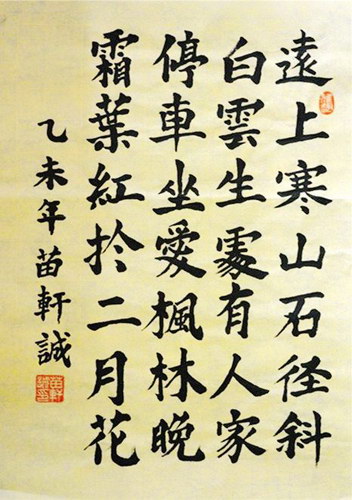 遠上寒山石径斜
白雲生處有人家
停車坐愛楓林晚
霜葉紅於二月花
乙未年苗軒誠